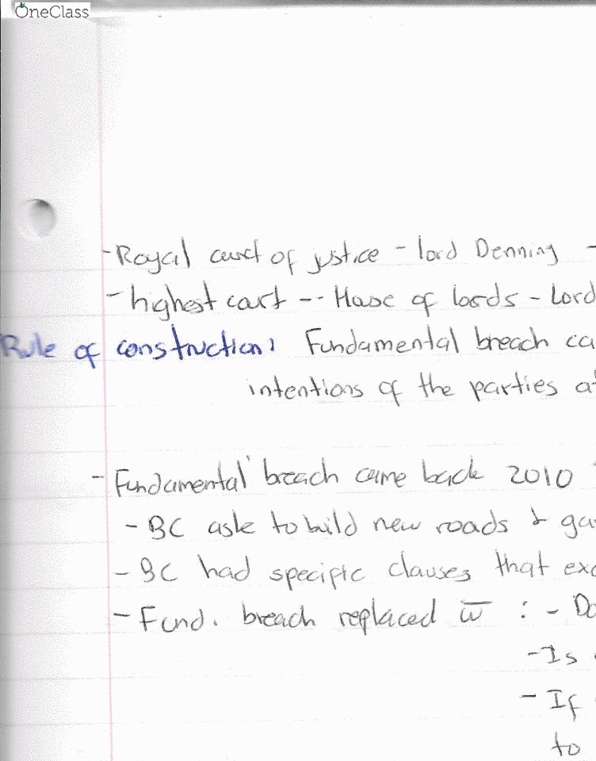 OneClass
- Royal court of justice - lord Denning -
- highest cart -- House of lords - Lord
Rule of construction: Fundamental breach ca
intentions of the parties at
- Fundamental breach came back 2010
- BC ask to build new roads & ga
- BC had specific clauses that exc
- Fund. breach replaced w̅ : - Do
- Is
- If
to